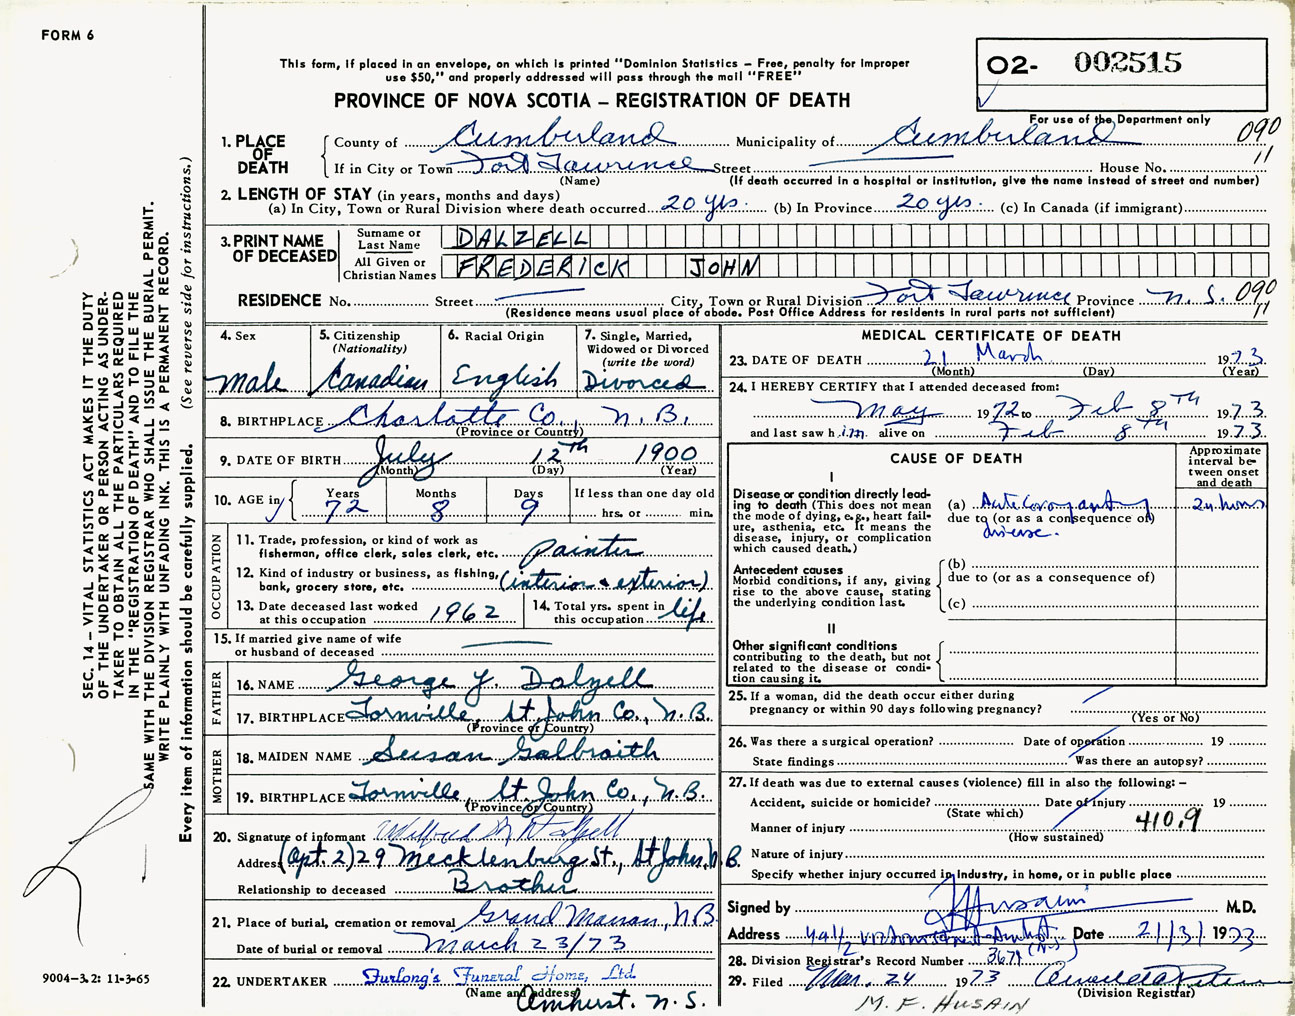 FORM 6
This form, if placed in an envelope, on which is printed "Dominion Statistics – Free, penalty for improper
use $50," and properly addressed will pass through the mail "FREE"
PROVINCE OF NOVA SCOTIA – REGISTRATION OF DEATH
02- 002515
For use of the Department only
1. PLACE OF DEATH County of Cumberland Municipality of Cumberland 090
If in City or Town Fort Lawrence Street House No. 11
(Name) (If death occurred in a hospital or institution, give the name instead of street and number)
2. LENGTH OF STAY (in years, months and days)
(a) In City, Town or Rural Division where death occurred 20 yrs. (b) In Province 20 yrs. (c) In Canada (if immigrant)
3. PRINT NAME OF DECEASED Surname or Last Name DALZELL
All Given or Christian Names FREDERICK JOHN
RESIDENCE No. Street City, Town or Rural Division Fort Lawrence Province N.S. 090
(Residence means usual place of abode. Post Office Address for residents in rural parts not sufficient) 11
4. Sex 5. Citizenship (Nationality) 6. Racial Origin 7. Single, Married, Widowed or Divorced (write the word)
Male Canadian English Divorced
8. BIRTHPLACE Charlotte Co. N.B.
(Province or Country)
9. DATE OF BIRTH July 12th 1900
(Month) (Day) (Year)
10. AGE in Years Months Days If less than one day old
72 8 9 hrs. or min.
OCCUPATION
11. Trade, profession, or kind of work as fisherman, office clerk, sales clerk, etc. Painter
12. Kind of industry or business, as fishing, bank, grocery store, etc. (interior & exterior)
13. Date deceased last worked at this occupation 1962 14. Total yrs. spent in this occupation life
15. If married give name of wife
or husband of deceased
FATHER
16. NAME George J. Dalzell
17. BIRTHPLACE Lornville, St John Co., N.B.
(Province or Country)
MOTHER
18. MAIDEN NAME Susan Galbraith
19. BIRTHPLACE Lornville, St. John Co., N.B.
(Province or Country)
20. Signature of informant
Address (Apt. 2) 29 Mecklenburg St., St John, N.B.
Relationship to deceased Brother
21. Place of burial, cremation or removal Grand Manan, N.B.
Date of burial or removal March 23/73
22. UNDERTAKER Furlong's Funeral Home, Ltd.
(Name and address) Amherst. N.S.
MEDICAL CERTIFICATE OF DEATH
23. DATE OF DEATH 21 March 1973
(Month) (Day) (Year)
24. I HEREBY CERTIFY that I attended deceased from:
May 1972 to Feb 8TH 1973
and last saw him alive on Feb 8TH 1973
CAUSE OF DEATH
Approximate interval between onset and death
I
Disease or condition directly leading to death (This does not mean the mode of dying, e.g., heart failure, asthenia, etc. It means the disease, injury, or complication which caused death.)
(a) Acute Coronary 24 hours
due to (or as a consequence of)
disease.
Antecedent causes
Morbid conditions, if any, giving rise to the above cause, stating the underlying condition last.
(b)
due to (or as a consequence of)
(c)
II
Other significant conditions
contributing to the death, but not related to the disease or condition causing it.
25. If a woman, did the death occur either during
pregnancy or within 90 days following pregnancy?
(Yes or No)
26. Was there a surgical operation? Date of operation 19
State findings Was there an autopsy?
27. If death was due to external causes (violence) fill in also the following: –
Accident, suicide or homicide? Date of injury 19
(State which)
Manner of injury 410.9
(How sustained)
Nature of injury
Specify whether injury occurred in industry, in home, or in public place
Signed by Husain M.D.
Address Date 21/3/ 1973
28. Division Registrar's Record Number 3671
29. Filed Mar. 24 1973
(Division Registrar)
M. F. HUSAIN
SEC. 14 – VITAL STATISTICS ACT MAKES IT THE DUTY
OF THE UNDERTAKER OR PERSON ACTING AS UNDER-
TAKER TO OBTAIN ALL THE PARTICULARS REQUIRED
IN THE "REGISTRATION OF DEATH" AND TO FILE THE
SAME WITH THE DIVISION REGISTRAR WHO SHALL ISSUE THE BURIAL PERMIT.
WRITE PLAINLY WITH UNFADING INK. THIS IS A PERMANENT RECORD.
Every item of information should be carefully supplied. (See reverse side for instructions.)
9004–3.2: 11-3-65